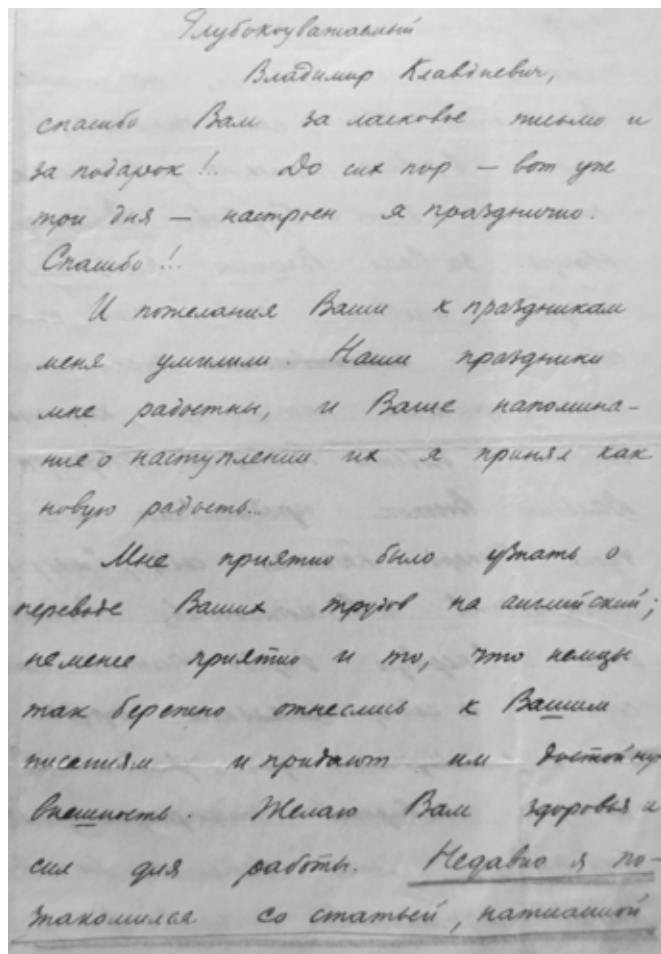 Глубокоуважаемый
Владимир Клавдиевич,
спасибо Вам за ласковое письмо и
за подарок!.. До сих пор — вот уже
три дня — настроен я празднично.
Спасибо!..
И пожелания Ваши к праздникам
меня умилили. Наши праздники
мне радостны, и Ваше напомина-
ние о наступлении их я принял как
новую радость...
Мне приятно было узнать о
переводе Ваших трудов на английский;
неменее приятно и то, что немцы
так бережно отнеслись к Вашим
писаниям и придают им достойную
внешность. Желаю Вам здоровья и
сил для работы. Недавно я по-
знакомился со статьей, написанной